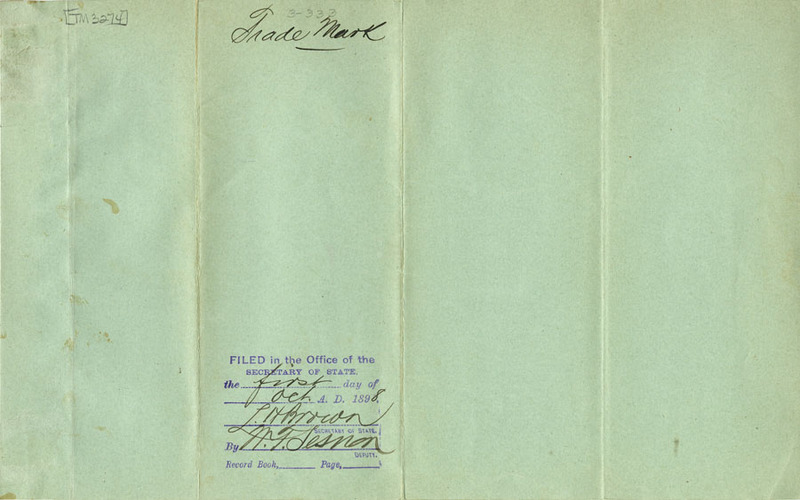 [TM3274]
3-333
Trade Mark
FILED in the Office of the
SECRETARY OF STATE.
the first day of
Oct. A. D. 1898.
L. H. Brown
SECRETARY OF STATE.
By W. T. Sesnon
DEPUTY.
Record Book, Page,